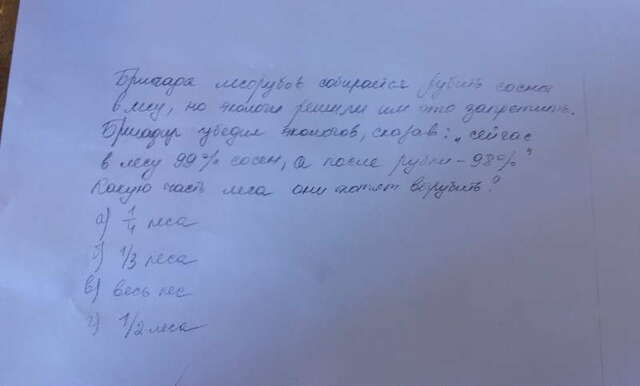 Бригада лесорубов собирается рубить сосны
в лесу, но экологи решили им это запретить.
Бригадир убедил экологов, сказав: „сейчас
в лесу 99% сосен, а после рубки - 98%"
Какую часть леса они хотят вырубить?
а) 1/4 леса
б) 1/3 леса
в) весь лес
г) 1/2 леса